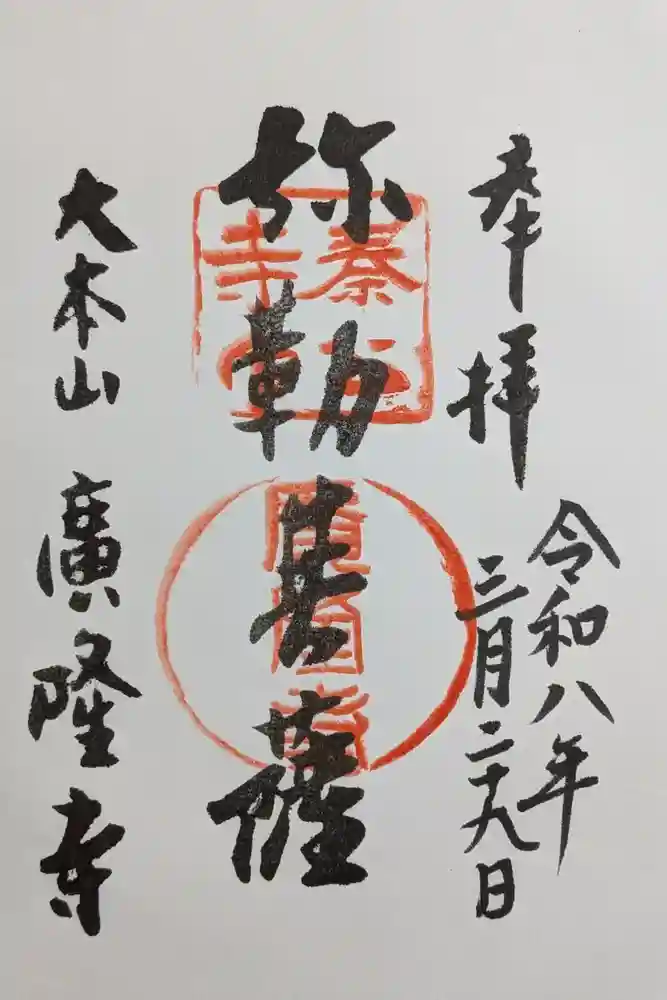 奉拝
令和八年
三月二十九日
弥勒菩薩
秦公
寺
大本山 廣隆寺